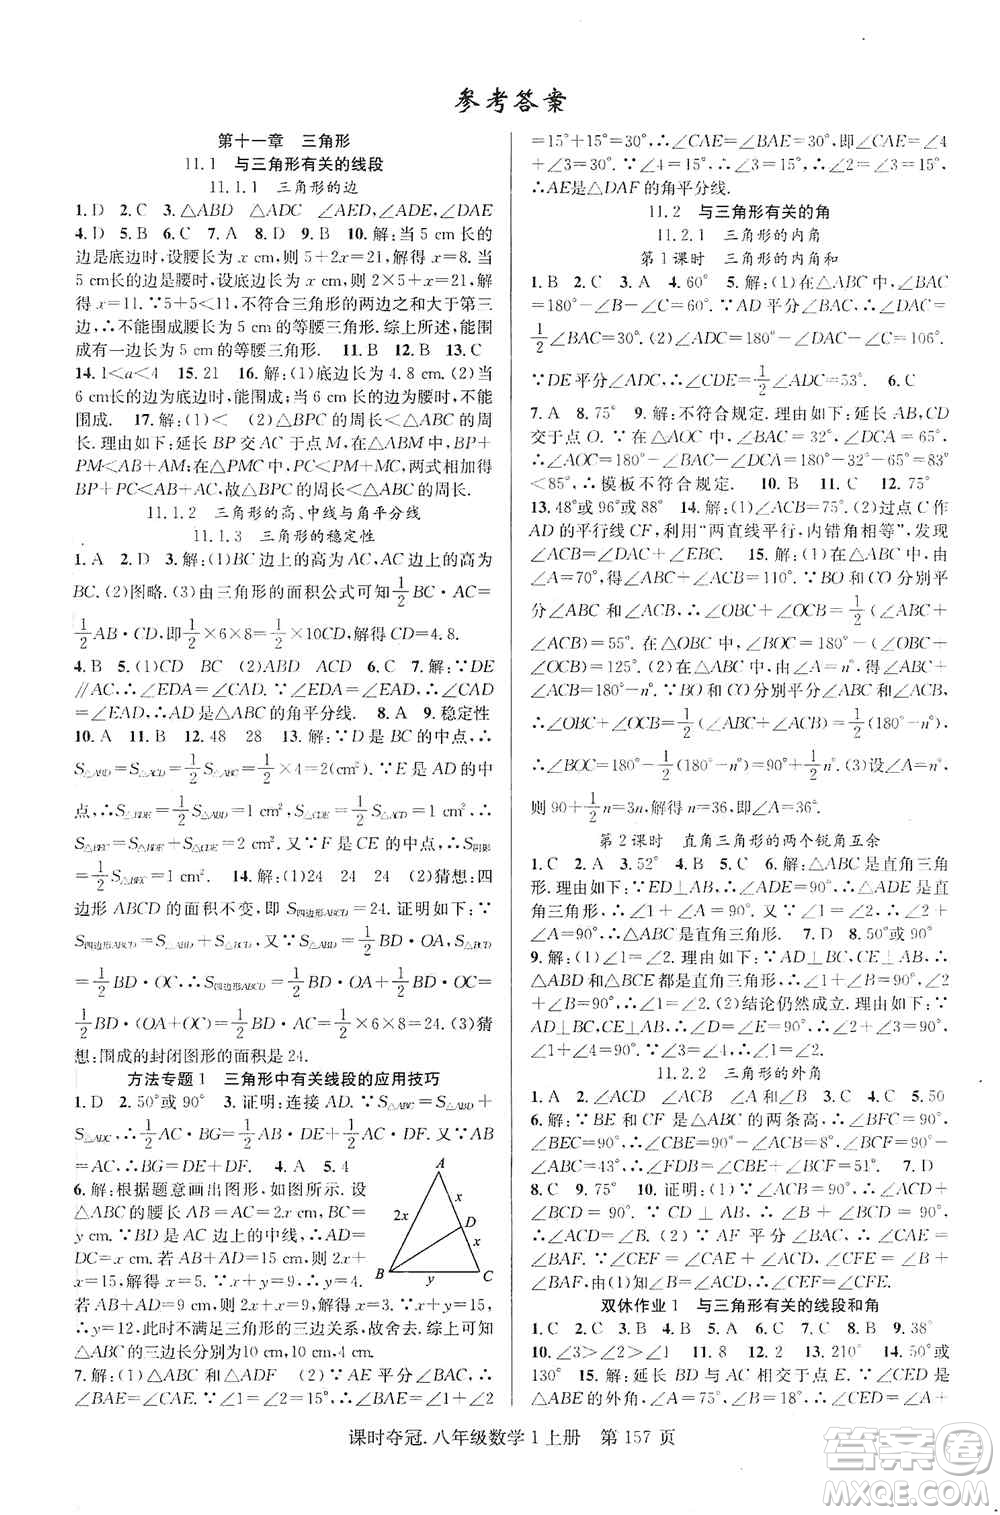 参考答案
第十一章 三角形
11.1 与三角形有关的线段
11.1.1 三角形的边
1. D 2. C 3. △ABD △ADC ∠AED,∠ADE ∠DAE
4. D 5. C 6. C 7. A 8. D 9. C 10. 解:当 5 cm长的
边是底边时,设腰长为x cm,则5+2x=21,解得x=8.当
5 cm长的边为腰时,设底边长为x cm,则2×5+x=21,
解得x=11.∵5+5<11,不符合三角形的两边之和大于第三
边,∴不能围成腰长为5 cm的等腰三角形.综上所述,能围
成有一边长为 5 cm的等腰三角形. 11. B 12. B 13. C
14. 1<a<4 15. 21 16. 解:(1)底边长为 4.8 cm.(2)当
6 cm长为底边时,能围成;当6 cm长的边为腰时,不能
围成. 17. 解:(1)< (2)△BPC 的周长<△ABC 的周
长.理由如下:延长 BP 交 AC 于点M,在△ABM 中,BP+
PM<AB+AM;在△PMC中,PC<PM+MC,两式相加得
BP+PC<AB+AC,故△BPC的周长<△ABC的周长.
11.1.2 三角形的高、中线与角平分线
11.1.3 三角形的稳定性
1. A 2. D 3. 解:(1)BC边上的高为AC,AC边上的高为
BC.(2)图略.(3)由三角形的面积公式可知1/2BC·AC=
1/2AB·CD,即1/2×6×8=1/2×10CD,解得CD=4.8.
4. B 5. (1)CD BC (2)ABD ACD 6. C 7. 解:∵DE
∥AC,∴∠EDA=∠CAD.∵∠EDA=∠EAD,∴∠CAD
=∠EAD,∴AD是△ABC的角平分线. 8. A 9. 稳定性
10. A 11. B 12. 48 28 13. 解:∵D 是 BC 的中点,∴
S△ABD=S△ACD=1/2S△ABC=1/2×4=2(cm²).∵E是AD的中
点,∴S△BDE=1/2S△ABD=1 cm²,S△CDE=1/2S△ACD=1 cm²,∴
S△BEC=S△BDE+S△CDE=2 cm².又∵F是CE的中点,∴S阴影
=1/2S△BEC=1 cm². 14. 解:(1)24 24 24 (2)猜想:四
边形 ABCD 的面积不变,即 S四边形ABCD=24. 证明如下:∵
S四边形ABCD=S△ABD+S△BCD,S△ABD=1/2BD·OA,S△BCD=
1/2BD·OC,∴S四边形ABCD=1/2BD·OA+1/2BD·OC=
1/2BD·(OA+OC)=1/2BD·AC=1/2×6×8=24.(3)猜
想:围成的封闭图形的面积是24.
方法专题1 三角形中有关线段的应用技巧
1. D 2. 50°或90° 3. 证明:连接 AD.∵S△ABC=S△ABD+
S△ADC,∴1/2AC·BG=1/2AB·DE+1/2AC·DF.又∵AB
=AC,∴BG=DE+DF. 4. A 5. 4
6. 解:根据题意画出图形,如图所示.设
△ABC 的腰长为 2x cm,底边长BC=
y cm.∵BD是AC边上的中线,∴AD=
DC=x cm.若 AB+AD=15 cm,则2x+
x=15,解得x=5.∴x+y=9,解得y=4.
若AB+AD=9 cm,则2x+x=9,解得x=3.∴x+y=15,
∴y=12,此时不满足三角形的三边关系,故舍去.综上可得
△ABC的三边长分别为10 cm,10 cm,4 cm.
7. 解:(1)△ADF △ABC (2)∵AE 平分∠BAC,∴
∠BAE=∠CAE.∵∠1=∠2=15°,∴∠BAE=∠1+∠2
A
x
2x
D
x
B
y
C
=15°+15°=30°,∴∠CAE=∠BAE=30°,即∠CAE=∠4
+∠3=30°.∵∠4=15°,∴∠3=15°,∴∠2=∠3=15°,
∴AE是△DAF的角平分线.
11.2 与三角形有关的角
11.2.1 三角形的内角
第1课时 三角形的内角和
1. B 2. C 3. C 4. 60° 5. 解:(1)在△ABC中,∠BAC
=180°-∠B-∠C=60°.∵AD平分∠BAC,∴∠DAC=
1/2∠BAC=30°.
∵DE平分∠ADC,∴∠CDE=1/2∠ADC=53°. 6. C
7. A 8. 75° 9. 解:不符合规定.理由如下:延长AB,CD
交于点 O.∵在△AOC 中,∠BAC=32°,∠DCA=65°,
∴∠AOC=180°-∠BAC-∠DCA=180°-32°-65°=83°
<85°,∴模板不符合规定. 10. B 11. C 12. 75°
13. 48°或96°或88° 14. 解:(1)∠ACB=75°.(2)过点 C 作
AD的平行线CF,利用“两直线平行,内错角相等”,发现
∠ACB=∠DAC+∠EBC. 15. 解:(1)在△ABC中,∵
∠A=70°,∴∠ABC+∠ACB=110°.∵BO和CO分别平
分∠ABC 和∠ACB,∴∠OBC+∠OCB=1/2(∠ABC+
∠ACB)=55°.在△OBC中,∠BOC=180°-(∠OBC+
∠OCB)=125°.(2)在△ABC中,∵∠A=n°,得∠ABC+
∠ACB=180°-n°.∵BO和CO分别平分∠ABC和∠ACB,
∴∠OBC+∠OCB=1/2(∠ABC+∠ACB)=1/2(180°-n°),
∴∠BOC=180°-1/2(180°-n°)=90°+1/2n°.(3)设∠A=n°,
则90+1/2n=3n,解得n=36,即∠A=36°.
第2课时 直角三角形的两个锐角互余
1. C 2. A 3. 52° 4. B 5. C 6. 解:△ABC是直角三角
形.∵ED⊥AB,∴∠ADE=90°,∴△ADE是直
角三角形,∴∠1+∠A=90°.又∵∠1=∠2,∴∠2+∠A
=90°,∴△ABC是直角三角形. 7. D 8. 50°或90°
9. 解:(1)∠1=∠2.理由如下:∵AD⊥BC,BE⊥AC,∴
△ABD 和△BCE都是直角三角形,∴∠1+∠C=90°,∠2
+∠C=90°,∴∠1=∠2.(2)结论仍然成立.理由如下:∵
AD⊥BC,BE⊥AC,∴∠D=∠E=90°,∴∠2+∠3=90°,∠1
+∠4=90°.∵∠3=∠4,∴∠1=∠2.
11.2.2 三角形的外角
1. A 2. ∠ACD ∠ADB ∠A和∠ABC 3. D 4. C 5. 50
6. 解:∵BE 和 CF 是△ABC 的两条高,∴∠BFC=90°,
∠BEC=90°.∵∠FCB=∠BEC-∠ACB=8°,∴∠FCB=
∠ABC=43°.∴∠FBC=51°. 7. D
8. C 9. 75° 10. 证明:(1)∵∠ACB=90°,∴∠CAB+
∠B=90°.∵CD⊥AB,∴∠CAD+∠ACD=90°,
∴∠ACD=∠B.(2)∵AF 平分∠CAB,∴∠CAE=
∠BAF.∵∠CEF=∠CAE+∠ACD,∠CFE=∠B+
∠BAF,∴∠CEF=∠CFE.
双休作业1 与三角形有关的线段和角
1. C 2. C 3. A 4. D 5. B 6. C 7. A 8. C
10. ∠3>∠2>∠1 11. 8 12. 2 13. 210° 14. 50°或
130° 15. 解:延长 BD 与 AC 相交于点 E.∵∠DEC 是
△ABE的外角,∠A=75°,∠B=18°,∴∠DEC=∠A+
课时夺冠.八年级数学1上册 第157页